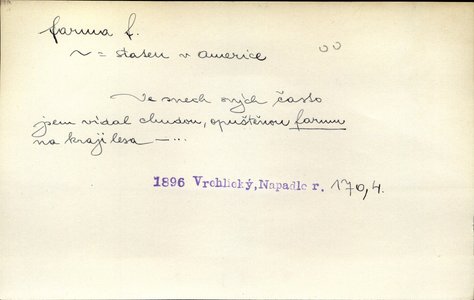 farma f.
~ = statek v Americe
Ve snech svých často
jsem vídal chudou, opuštěnou farmu
na kraji lesa — ...
1896 Vrchlický, Napadlo r. 170,4.